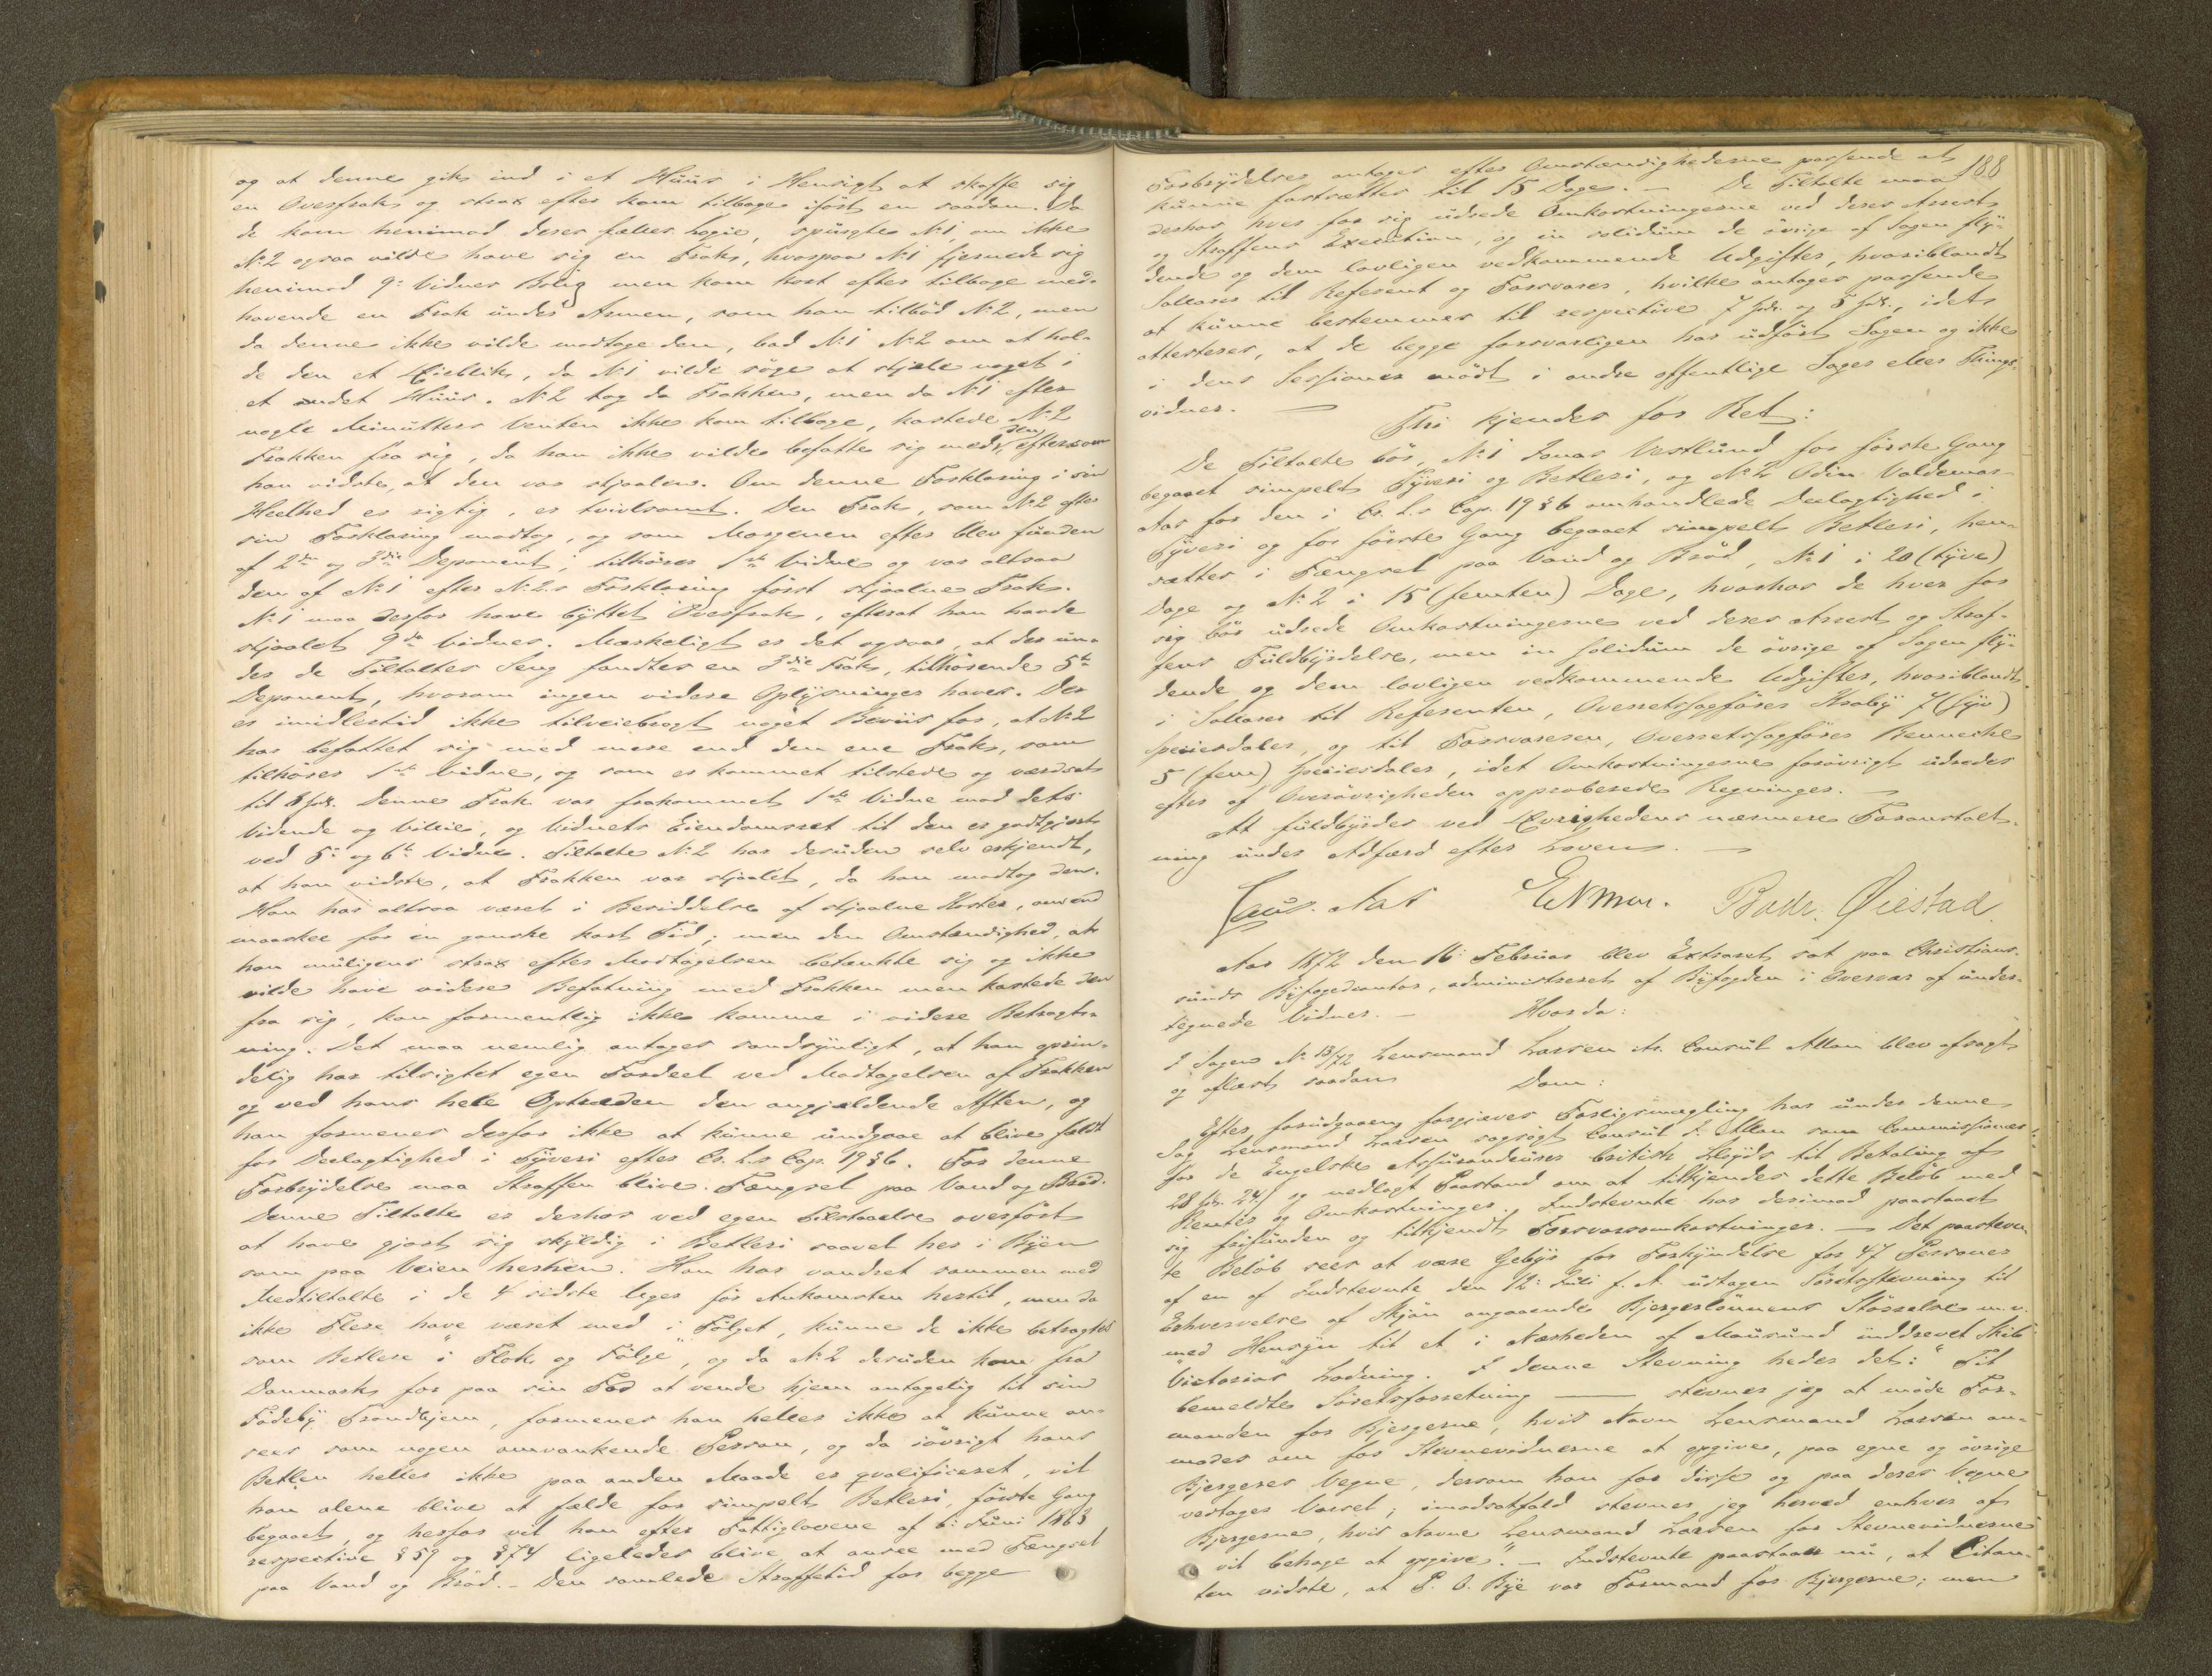 og at denne gik ind i et Huus i Hensigt at skaffe sig
en Overfrak og strax efter kom tilbage iført en saadan. Da
de kom henimod deres fælles Logie, spurgte N:1, om ikke
N:2 ogsaa vilde have sig en Frak, hvorpaa N:1 fjernede sig
henimod 9: Vidnes Bolig men kom kort efter tilbage med-
havende en Frak under Armen, som han tilbød N:2, men
da denne ikke vilde modtage den, bad N:1 N:2 om at hol-
de den et Øieblik, da N:1 vilde søge at stjæle noget i
et andet Huus. N:2 tog da Frakken, men da N:1 efter
nogle Minutters Venten ikke kom tilbage, kastede N:2
Frakken fra sig, da han ikke vilde befatte sig med den, eftersom
han vidste, at den var stjaalen. Om denne Forklaring i sin
Heelhed er rigtig, er tvivlsomt. Den Frak, som N:2 efter
sin Forklaring modtog, og som Morgenen efter blev funden
af 2den og 3die Deponent, tilhører 1ste Vidne og var altsaa
den af N:1 efter N:2s Forklaring først stjaalne Frak.
N:1 maa derfor have byttet Overfrak, efterat han havde
stjaalet 9de Vidnes. Mærkeligt er det ogsaa, at der un-
der de Tiltaltes Seng fandtes en 3die Frak, tilhørende 5te
Deponent, hvorom ingen videre Oplysninger haves. Der
er imidlertid ikke tilveiebragt noget Beviis for, at N:2
har befattet sig med mere end den ene Frak, som
tilhører 1ste Vidne, og som er kommet tilstede og værdsat
til 8 Spd. Denne Frak var frakommet 1ste Vidne mod dets
Vidende og Villie, og Vidnets Eiendomsret til den er godtgjort
ved 5te og 6te Vidne. Tiltalte N:2 har desuden selv erkjendt,
at han vidste, at Frakken var stjaalet, da han modtog den.
Han har altsaa været i Besiddelse af stjaalne Koster, omend
maaskee for en ganske kort Tid; men den Omstændighed, at
han muligens strax efter Modtagelsen betænkte sig og ikke
vilde have videre Befatning med Frakken men kastede den
fra sig, kan formentlig ikke komme i videre Betragt-
ning. Det maa nemlig antages sandsynligt, at han oprin-
delig har tilsigtet egen Fordeel ved Modtagelsen af Frakken
og ved hans hele Optræden den angjældende Aften, og
han formenes derfor ikke at kunne undgaae at blive fældt
for Deelagtighed i Tyveri efter Cr. L.s Cap. 19 § 6. For denne
Forbrydelse maa Straffen blive Fængsel paa Vand og Brød.
Denne Tiltalte er deshos ved egen Tilstaaelse overført
at have gjort sig skyldig i Betleri saavel her i Byen
som paa Veien herhen. Han har vandret sammen med
Medtiltalte i de 4 sidste Uger før Ankomsten hertil, men da
ikke Flere have været med i Følget, kunne de ikke betragtes
som Betlere i "Flok og Følge", og da N:2 desuden kom fra
Danmark for paa sin Fod at vende hjem antagelig til sin
Fødeby Trondhjem, formenes han heller ikke at kunne an-
sees som nogen omvankende Person, og da iøvrigt hans
Betlen heller ikke paa anden Maade er qvalificeret, vil
han alene blive at fælde for simpelt Betleri, første Gang
begaaet, og herfor vil han efter Fattiglovene af 6: Juni 1863
respective § 59 og § 74 ligeledes blive at ansee med Fængsel
paa Vand og Brød. - Den samlede Straffetid for begge
188
Forbrydelser antages efter Omstændighederne passende at
kunne fastsættes til 15 Dage. - De Tiltalte maa
deshos hver for sig udrede Omkostningerne ved deres Arrest
og Straffens Execution, og in solidum de øvrige af Sagen fly-
dende og dem lovligen vedkommende Udgifter, hvoriblandt
Sallarer til Referent og Forsvarer, hvilke antages passende
at kunne bestemmes til respective 7 Spd. og 5 Spd., idet
attesteres, at de begge forsvarligen har udført Sagen og ikke
i dens Sessioner mødt i andre offentlige Sager eller Things-
vidner. -
Thi kjendes for Ret:
De Tiltalte bør, N:1 Jonas Vestlund for første Gang
begaaet simpelt Tyveri og Betleri, og N:2 Odin Valdemar
Aas for den i Cr. L.s Cap. 19 § 6 omhandlede Deelagtighed i
Tyveri og for første Gang begaaet simpelt Betleri, hen-
sættes i Fængsel paa Vand og Brød, N:1 i 20 (tyve)
Dage og N:2 i 15 (femten) Dage, hvorhos de hver for
sig bør udrede Omkostningerne ved deres Arrest og Straf-
fens Fuldbyrdelse, men in solidum de øvrige af Sagen fly-
dende og dem lovligen vedkommende Udgifter, hvoriblandt
i Sallarer til Referenten, Overretssagfører Kraby 7 (syv)
Speciesdaler, og til Forsvareren, Overretssagfører Bennecke
5 (fem) Speciesdaler, idet Omkostningerne forøvrigt udredes
efter af Overøvrigheden approberede Regninger. -
At fuldbyrdes ved Øvrighedens nærmere Foranstalt-
ning under Adfærd efter Loven. -
Øiestad.
Aar 1872 den 16: Februar blev Extraret sat paa Christian-
sunds Byfogedcontor, administreret af Byfogden i Overvær af under-
tegnede Vidner. - Hvorda:
I Sagen N: 13/72 Lensmand Larsen ctr. Consul Allan blev afsagt
og oplæst saadan Dom:
Efter forudgaaen forgjæves Forligsmægling har under denne
Sag Lensmand Larsen sagsøgt Consul J. Allan som Commissionær
for de Engelske Assurandeurer british Lloyds til Betaling af
28 Spd. 24 ß og nedlagt Paastand om at tilkjendes dette Beløb med
Renter og Omkostninger. Indstevnte har derimod paastaaet
sig frifunden og tilkjendt Forsvarsomkostninger. - Det paastevn-
te Beløb sees at være Gebyr for Forkyndelse for 47 Personer
af en af Indstevnte den 12: Juli f. A. udtagen Søretsstevning til
Erhvervelse af Skjøn angaaende Bjergerlønnens Størrelse m.v.
med Hensyn til et i Nærheden af Mausund inddrevet Skib
"Victorias" Ladning. I denne Stevning hedes det: "Til
bemeldte Søretsforretning — stevner jeg at møde For-
manden for Bjergerne, hvis Navn Lensmand Larsen an-
modes om for Stevnevidnerne at opgive, paa egne og øvrige
Bjergeres Vegne, dersom han for disse og paa deres Vegne
vedtager Varsel; imodsatfald stevner jeg herved enhver af
Bjergerne, hvis Navne Lensmand Larsen for Stevnevidnerne
vil behage at opgive". - Indstevnte paastaar nu, at Citan-
ten vidste, at P. O. Bye var Formand for Bjergerne; men